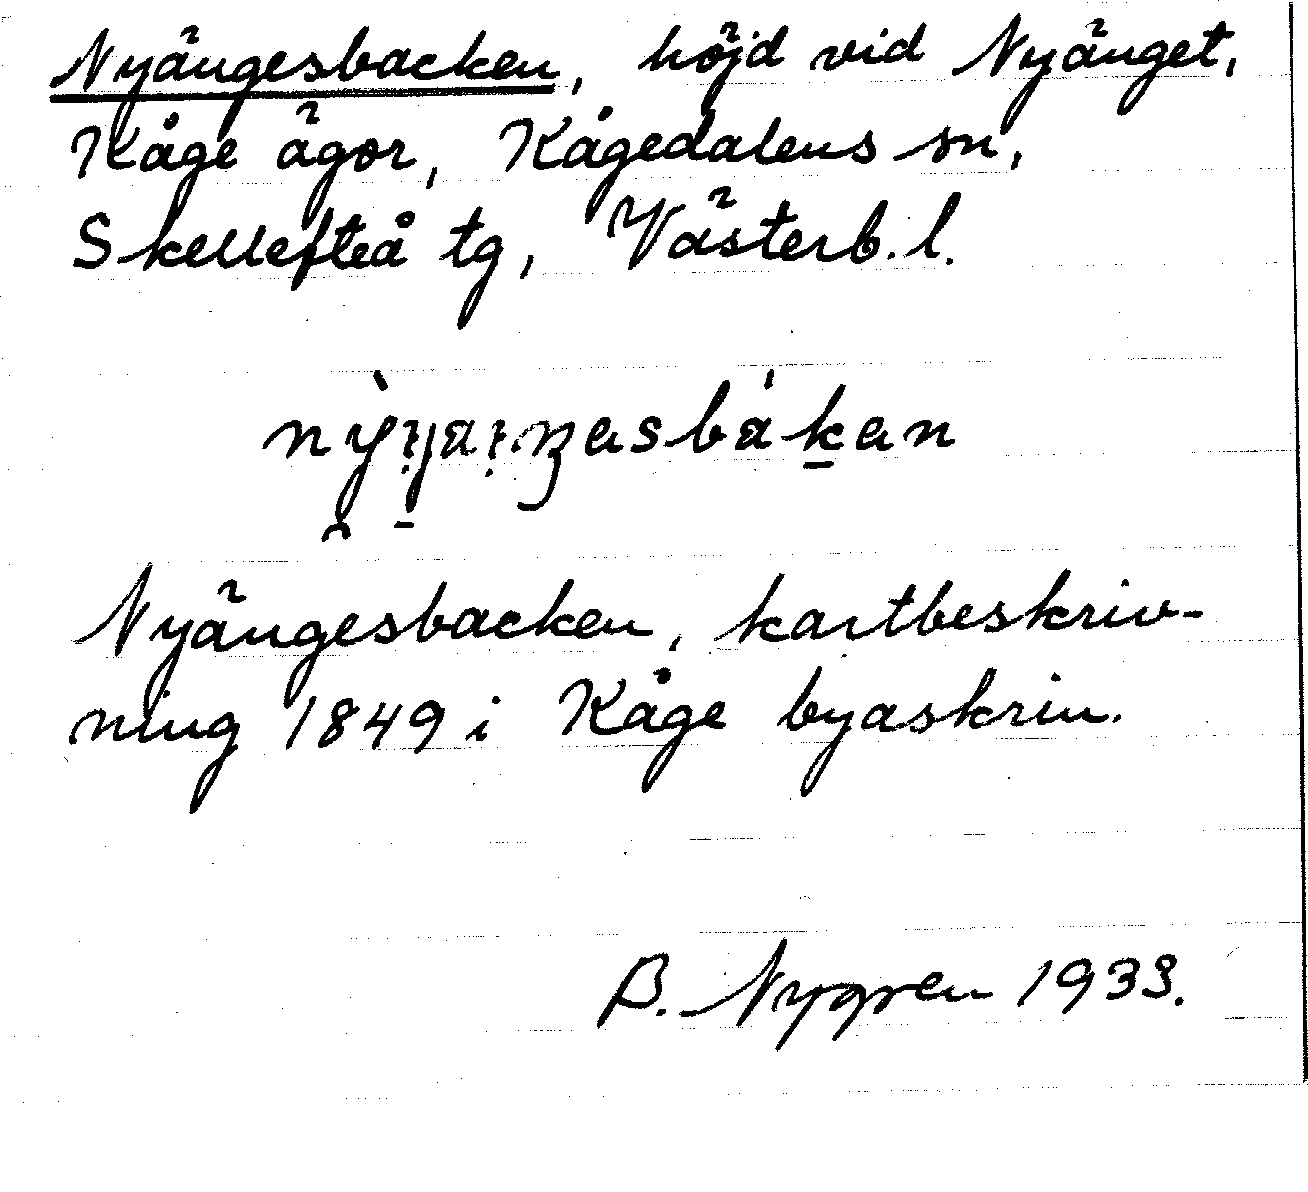 Nyängesbacken, höjd vid Nyänget,
Kåge ägor, Kågedalens sn,
Skellefteå tg, Västerb. l.
Nyängesbacken, kartbeskriv-
ning 1849 i Kåge byaskrin.
B. Nygren 1933.